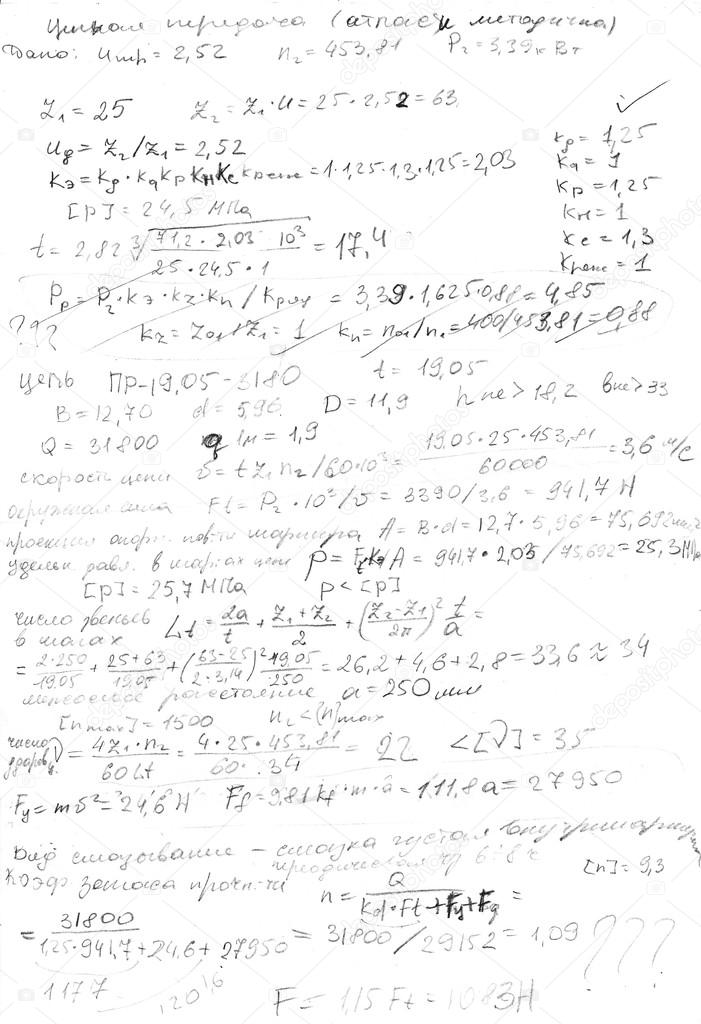 Цепная передача (атлас и методичка)
Дано: Uпер = 2,52 n₂ = 453,81 P₂ = 3,39 кВт
Z₁ = 25 Z₂ = Z₁·U = 25·2,52 = 63
Uд = Z₂/Z₁ = 2,52
Kэ = Kд·Kа Kр Kн Kс Kреж = 1·1,25·1,3·1,25 = 2,03
[p] = 24,5 МПа
Kд = 1,25
Kа = 1
Kр = 1,25
Kн = 1
Kс = 1,3
Kреж = 1
t = 2,8 2 ∛(71,2 · 2,03 · 10³ / 25 · 24,5 · 1) = 17,4
Pр = P₂·Kэ·Kz·Kn / Kряд = 3,39·1,625·0,88 = 4,85
??? Kz = Z₀₁/Z₁ = 1 Kn = n₀₁/n₁ = 400/453,81 = 0,88
t = 19,05
цепь ПР-19,05-3180
B = 12,70 d = 5,96 D = 11,9 h не > 18,2 b не > 33
Q = 31800 q 1м = 1,9
скорость цепи υ = t Z₁ n₂ / 60·10³ = 19,05·25·453,81 / 60000 = 3,6 м/с
окружная сила Ft = P₂·10³/υ = 3390/3,6 = 941,7 Н
проекция опорн. пов-ти шарнира A = B·d = 12,7·5,96 = 75,692 мм²
удельн давл. в шарнах цепи p = Ft Kэ/A = 941,7·2,03/75,692 = 25,3 МПа
[p] = 25,7 МПа p < [p]
число звеньев в шагах Lt = 2a/t + (Z₁+Z₂)/2 + ((Z₂-Z₁)/2π)² t/a =
= 2·250/19,05 + 25+63/19,05 + (63-25/2·3,14)² 19,05/250 = 26,2 + 4,6 + 2,8 = 33,6 ≈ 34
межосевое расстояние a = 250 мм
[n max] = 1500 n₂ < [n] max
число ударов ν = 4Z₁·n₂ / 60Lt = 4·25·453,81 / 60·34 = 22 < [ν] = 35
Fу = mυ² = 24,6 Н Ff = 9,81 kf·m·a = 111,8a = 27950
Вид смазывание – смазка густая внутришарнирная
периодическая 6÷8 ч
Коэф запаса прочн-ти n = Q / Kд·Ft + Fу + Fg = [n] = 9,3
= 31800 / 1,25·941,7 + 24,6 + 27950 = 31800/29152 = 1,09 ???
1177
F = 1,15 Ft = 1083Н